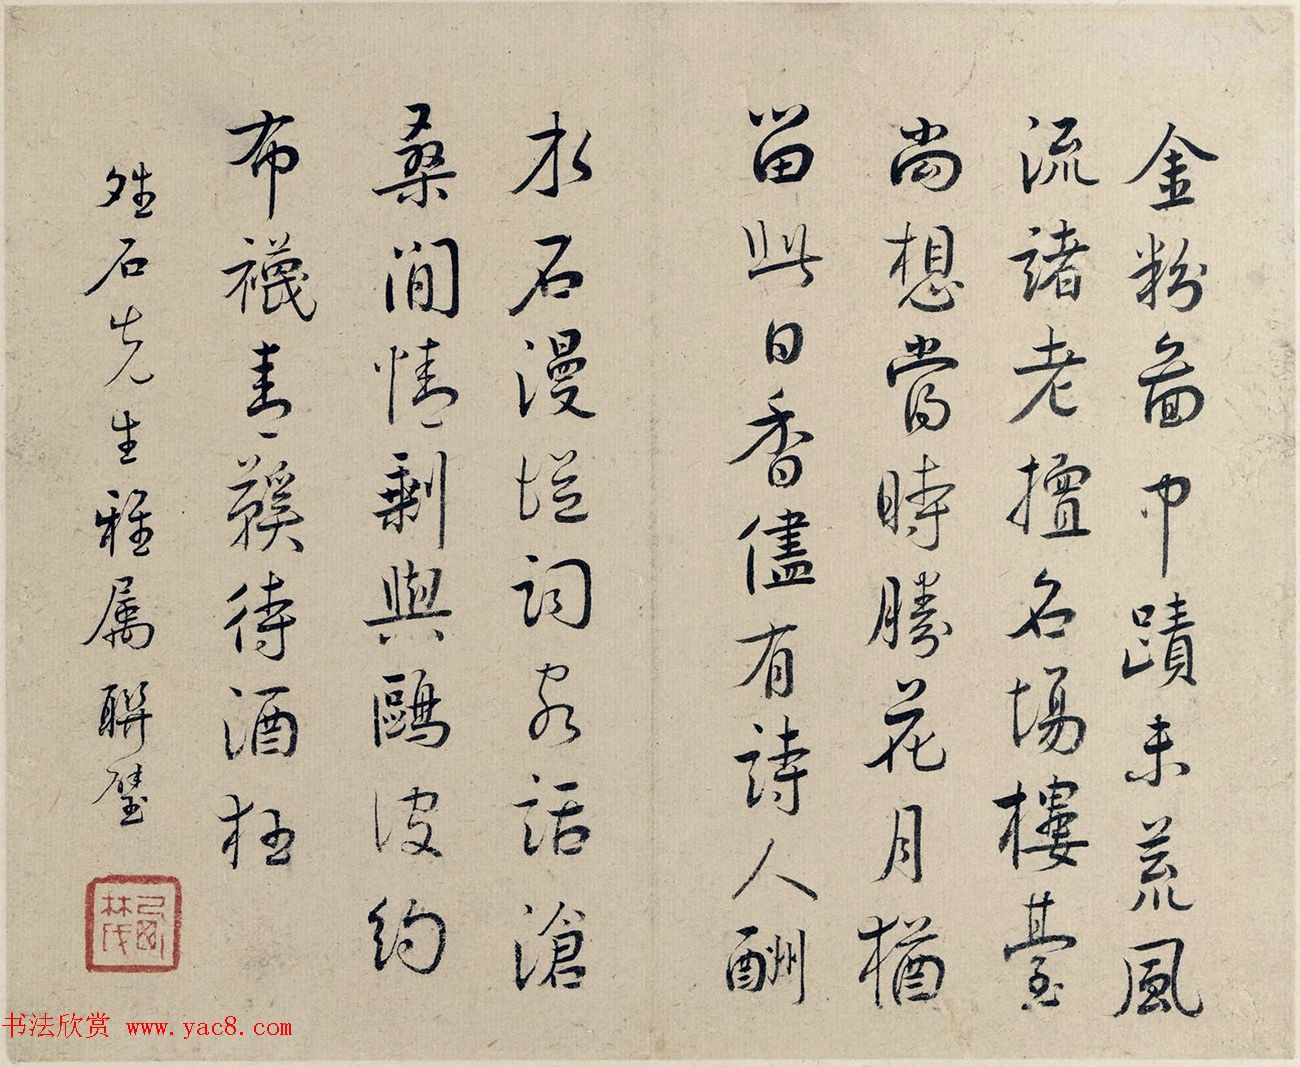 金粉啚中蹟未荒風
流諸老擅名場樓臺
尚想當時勝花月猶
留此日香儘有詩人酬
水石漫從詞客話滄
桑閒情剩與鷗波約
布襪青鞵待酒狂
姓石先生雅属聯璧
书法欣赏 www.yac8.com